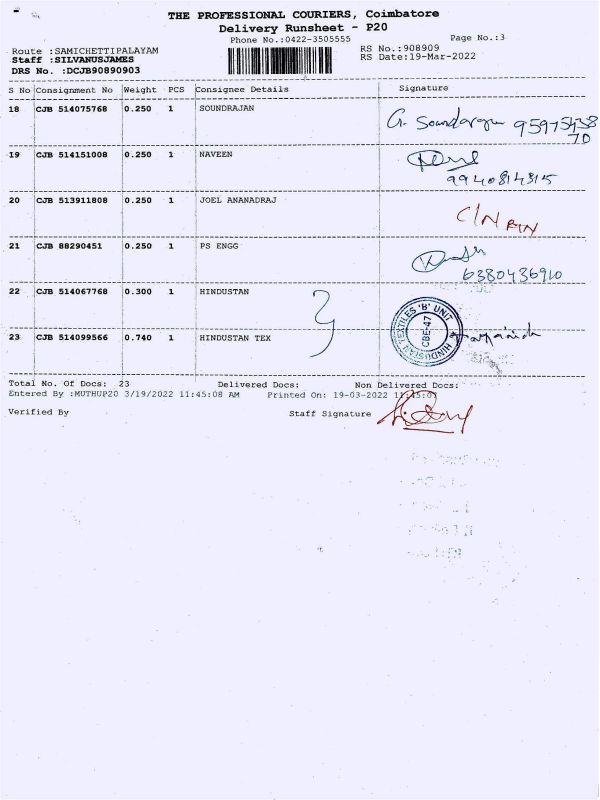 THE PROFESSIONAL COURIERS, Coimbatore
Delivery Runsheet - P20
Phone No.:0422-3505555 Page No.:3
Route :SAMICHETTIPALAYAM RS No.:908909
Staff :SILVANUSJAMES RS Date:19-Mar-2022
DRS No. :DCJB90890903
S No Consignment No Weight PCS Consignee Details Signature
18 CJB 514075768 0.250 1 SOUNDRAJAN
G. Soundarajan
19 CJB 514151008 0.250 1 NAVEEN
9940814815
20 CJB 513911808 0.250 1 JOEL ANANADRAJ
C/N
21 CJB 88290451 0.250 1 PS ENGG
6380436910
22 CJB 514067768 0.300 1 HINDUSTAN
HINDUSTAN TEXTILES 'B' UNIT
CBE-47
23 CJB 514099566 0.740 1 HINDUSTAN TEX
Total No. Of Docs: 23 Delivered Docs: Non Delivered Docs:
Entered By :MUTHUP20 3/19/2022 11:45:08 AM Printed On: 19-03-2022 11:45:07
Verified By Staff Signature